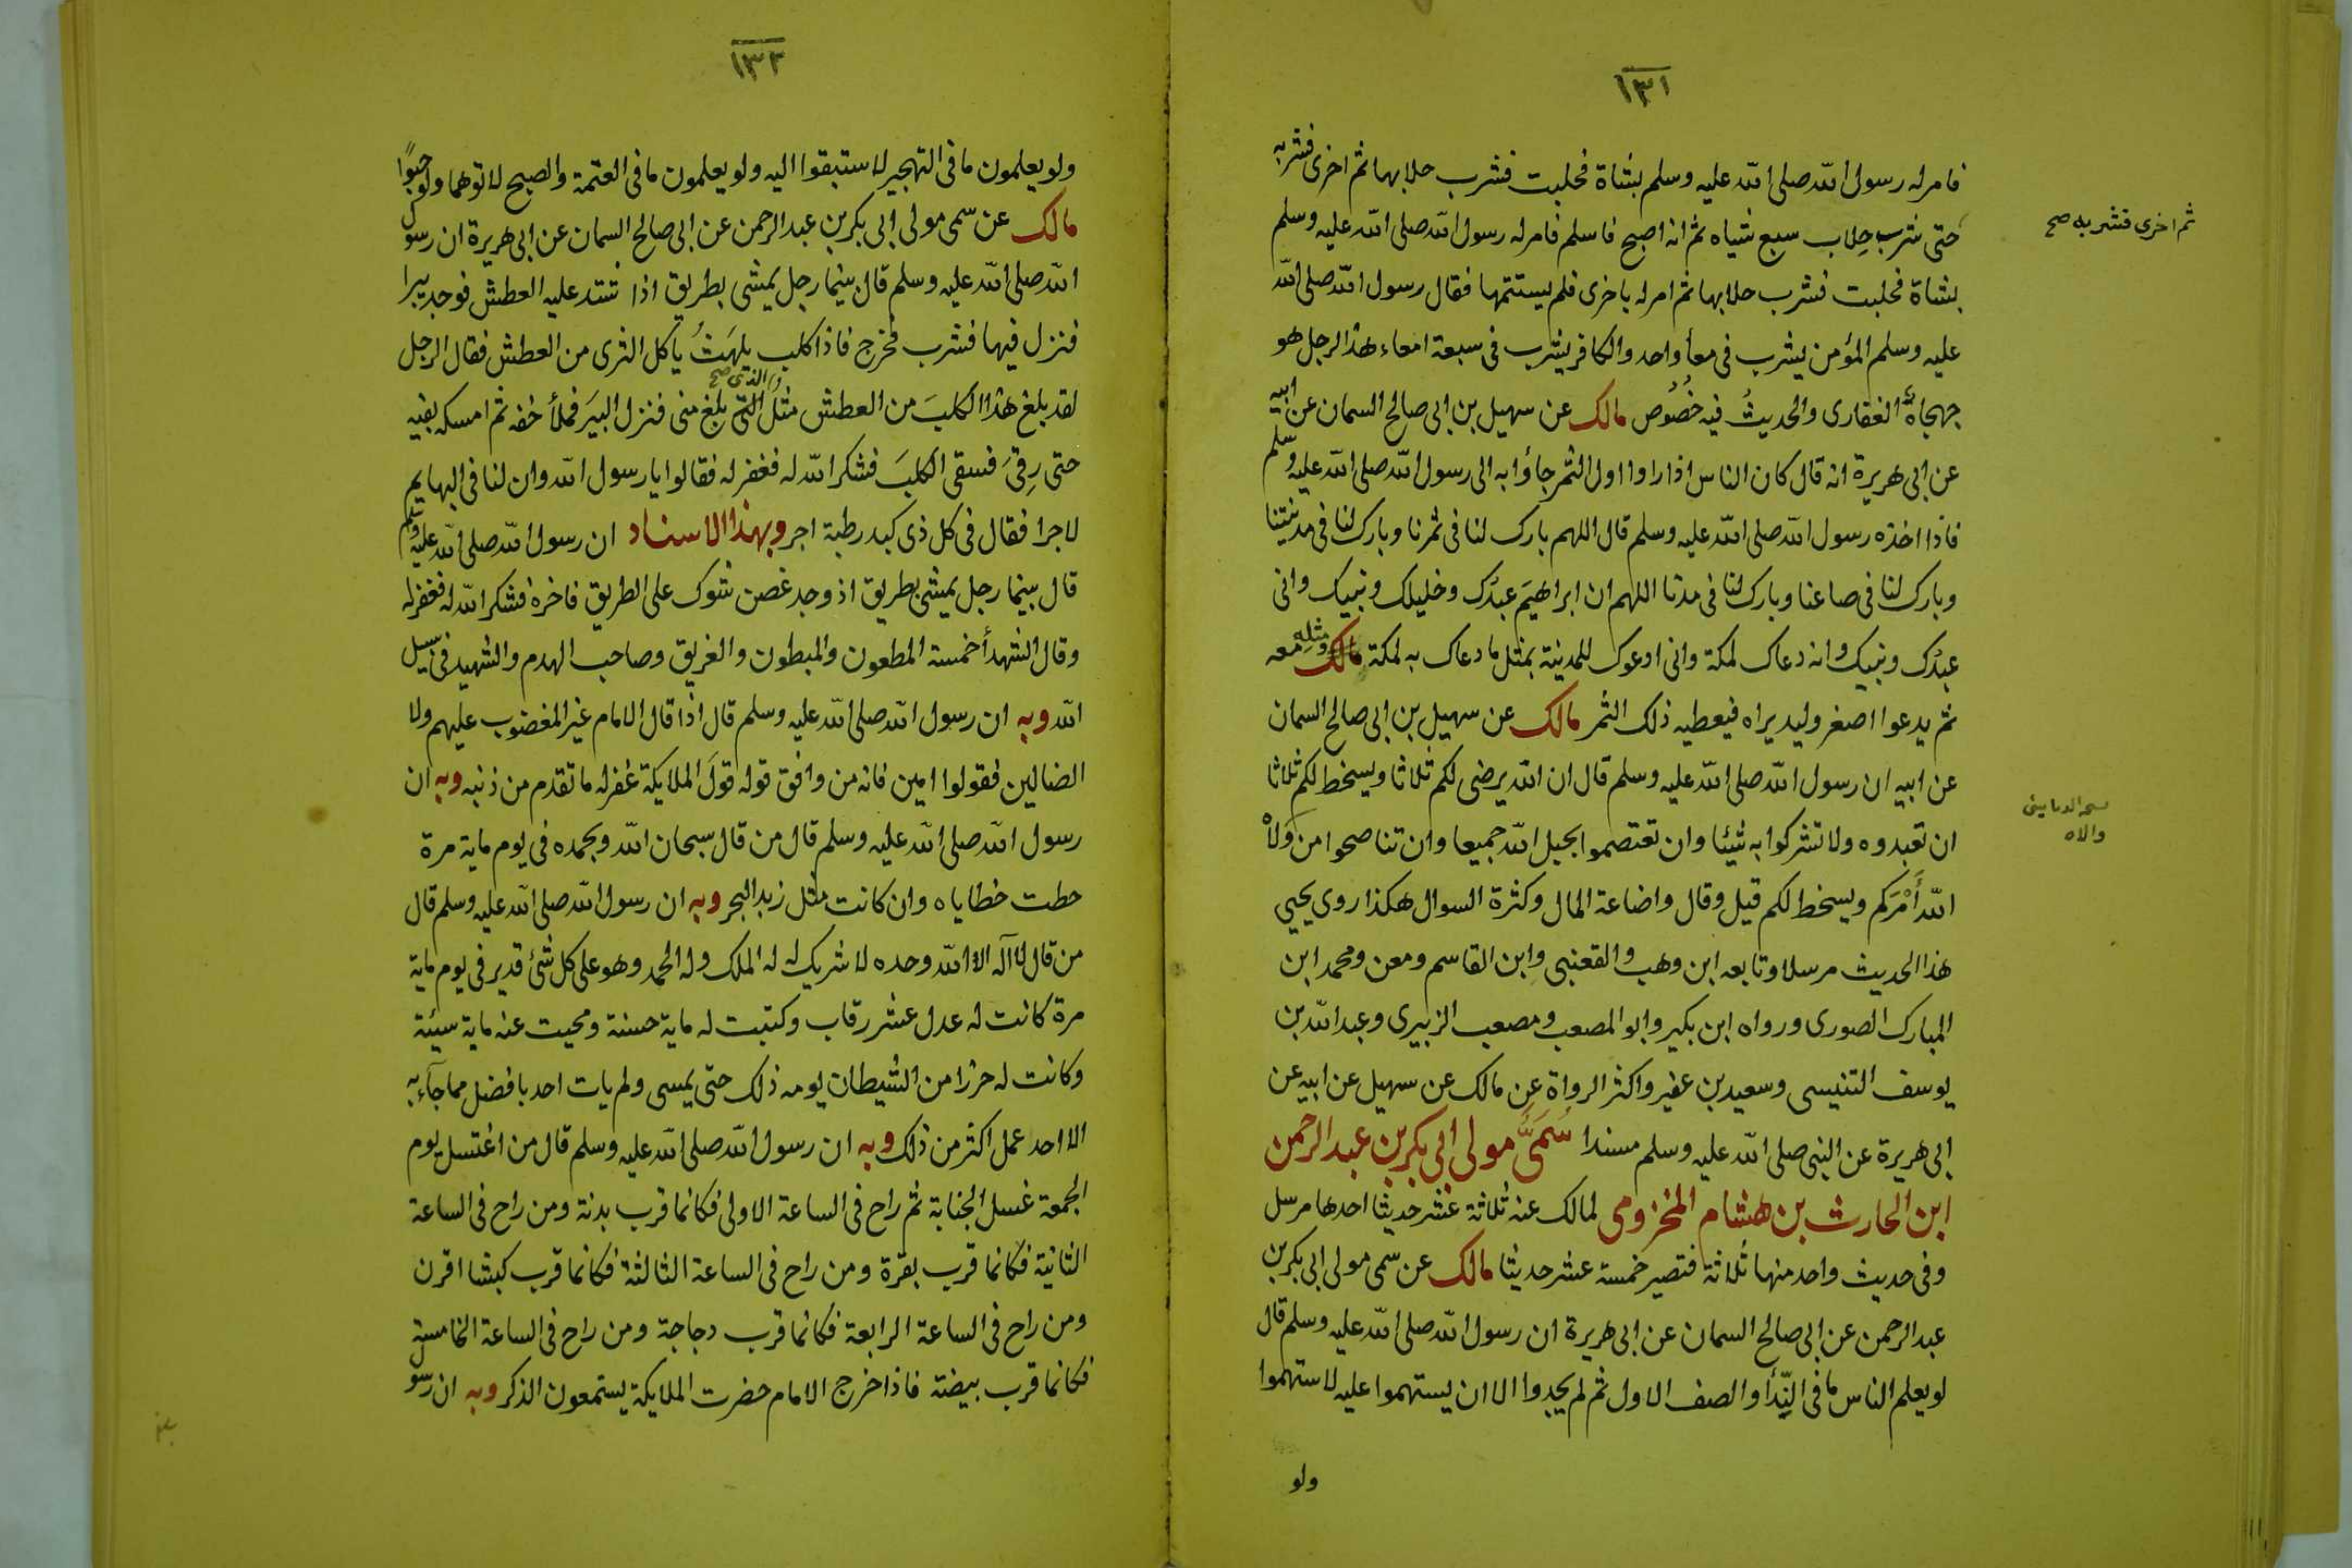 ١٣١
فامر له رسول الله صلى الله عليه وسلم بشاة فحلبت فشرب حلابها ثم اخرى فشربه
ثم اخرى فشربه صح
حتى شرب حِلاب سبع شياه ثم انه اصبح فاسلم فامر له رسول الله صلى الله عليه وسلم
بشاة فحلبت فشرب حلابها ثم امر له باخرى فلم يستتمها فقال رسول الله صلى الله
عليه وسلم المؤمن يشرب فى معأ واحد والكافر يشرب فى سبعة امعاء هذا الرجل هو
جهجاه الغفارى والحديثُ فيه خُصُوص مالك عن سهيل بن ابى صالح السمان عن ابيه
عن ابى هريرة انه قال كان الناس اذا راوا اول الثمر جاؤا به الى رسول الله صلى الله عليه وسلم
فاذا اخذه رسول الله صلى الله عليه وسلم قال اللهم بارك لنا فى ثمرنا وبارك لنا فى مدينتنا
وبارك لنا فى صاعنا وبارك لنا فى مدنا اللهم ان ابراهيمَ عبدُك وخليلك ونبيك وانى
عبدُك ونبيك وانه دعاك لمكة وانى ادعوك للمدينة بمثل ما دعاك به لمكة ومثله معه
ثم يدعوا اصغر وليد يراه فيعطيه ذلك الثمر مالك عن سهيل بن ابى صالح السمان
عن ابيه ان رسول الله صلى الله عليه وسلم قال ان الله يرضى لكم ثلاثا ويسخط لكم ثلاثا
ان تعبدوه ولا تشركوا به شيئا وان تعتصموا بحبل الله جميعا وان تناصحوا من وَلاْ
والاه
الله أَمْرَكم ويسخط لكم قيل وقال واضاعة المال وكثرة السوال هكذا روى يحيى
هذا الحديث مرسلا وتابعه ابن وهب والقعنبى وابن القاسم ومعن ومحمد ابن
المبارك الصورى ورواه ابن بكير وابو المصعب ومصعب الزبيرى وعبد الله بن
يوسف التنيسى وسعيد بن عفير واكثر الرواة عن مالك عن سهيل عن ابيه عن
ابى هريرة عن النبى صلى الله عليه وسلم مسندا سُمَىّ مولى ابى بكر بن عبد الرحمن
ابن الحارث بن هشام المخزومى لمالك عنه ثلاثة عشر حديثا احدها مرسل
وفى حديث واحد منها ثلاثة فتصير خمسة عشر حديثا مالك عن سمى مولى ابى بكر بن
عبد الرحمن عن ابى صالح السمان عن ابى هريرة ان رسول الله صلى الله عليه وسلم قال
لو يعلم الناس ما فى النِّدأ والصف الاول ثم لم يجدوا الا ان يستهموا عليه لاستهموا
ولو
١٣٢
ولو يعلمون ما فى التهجير لاستبقوا اليه ولو يعلمون ما فى العتمة والصبح لاتوهما ولو حبوًا
مالك عن سمى مولى ابى بكر بن عبد الرحمن عن ابى صالح السمان عن ابى هريرة ان رسول
الله صلى الله عليه وسلم قال بينما رجل يمشى بطريق اذا شتد عليه العطش فوجد بيرا
فنزل فيها فشرب فخرج فاذا كلب يلهَثُ ياكل الثرى من العطش فقال الرجل
الذى صح
لقد بلغ هذا الكلبَ من العطش مثل التى بلغ منى فنزل البيرَ فملأ خفه ثم امسكه بفيه
حتى رِقىَ فسقى الكلبَ فشكر الله له فغفر له فقالوا يا رسول الله وان لنا فى البهايم
لاجرا فقال فى كل ذى كبد رطبة اجر وبهذا الاسناد ان رسول الله صلى الله عليه وسلم
قال بينما رجل يمشى بطريق اذ وجد غصن شوك على الطريق فاخره فشكر الله له فغفر له
وقال الشهدأ خمسة المطعون والمبطون والغريق وصاحب الهدم والشهيد فى سبيل
الله وبه ان رسول الله صلى الله عليه وسلم قال اذا قال الامام غير المغضوب عليهم ولا
الضالين فقولوا امين فانه من وافق قوله قولَ الملايكة غفر له ما تقدم من ذنبه وبه ان
رسول الله صلى الله عليه وسلم قال من قال سبحان الله وبحمده فى يوم ماية مرة
حطت خطاياه وان كانت مثل زبد البحر وبه ان رسول الله صلى الله عليه وسلم قال
من قال لا آله الا الله وحده لا شريك له له الملك وله الحمد وهو على كل شئ قدير فى يوم ماية
مرة كانت له عدل عشر رقاب وكتبت له ماية حسنة ومحيت عنه ماية سيئة
وكانت له حرزا من الشيطان يومه ذلك حتى يمسى ولم يات احد بافضل مما جآء به
الا احد عمل اكثر من ذلك وبه ان رسول الله صلى الله عليه وسلم قال من اغتسل يوم
الجمعة غسل الجنابة ثم راح فى الساعة الاولى فكانما قرب بدنة ومن راح فى الساعة
الثانية فكانما قرب بقرة ومن راح فى الساعة الثالثة فكانما قرب كبشا اقرن
ومن راح فى الساعة الرابعة فكانما قرب دجاجة ومن راح فى الساعة الخامسة
فكانما قرب بيضة فاذا خرج الامام حضرت الملايكة يستمعون الذكر وبه ان رسول